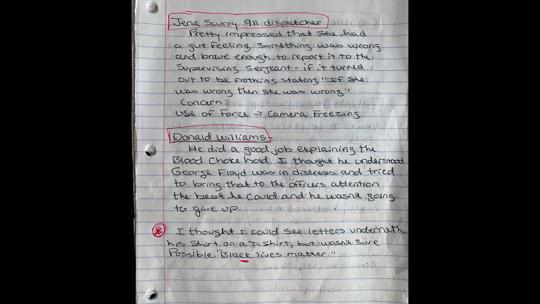 Jena Scurry 911 dispatcher
Pretty impressed that she had
a gut feeling, something was wrong
and brave enough to report it to the
Supervising Sergeant - if it turned
out to be nothing stating "If she
was wrong then she was wrong"
Concern:
Use of Force → Camera Freezing
Donald Williams
He did a good job explaining the
Blood Choke hold. I thought he understood
George Floyd was in distress and tried
to bring that to the officers attention
the best he could and he wasn't going
to give up.
* I thought I could see letters underneath
his shirt on a T-shirt, but wasn't sure
Possible "Black lives matter"